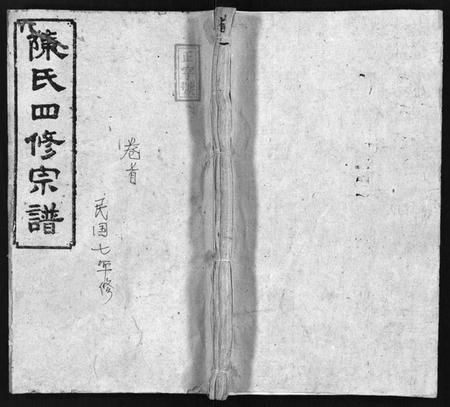 陳氏四修宗譜
正字號
卷首
民国七年修
首一